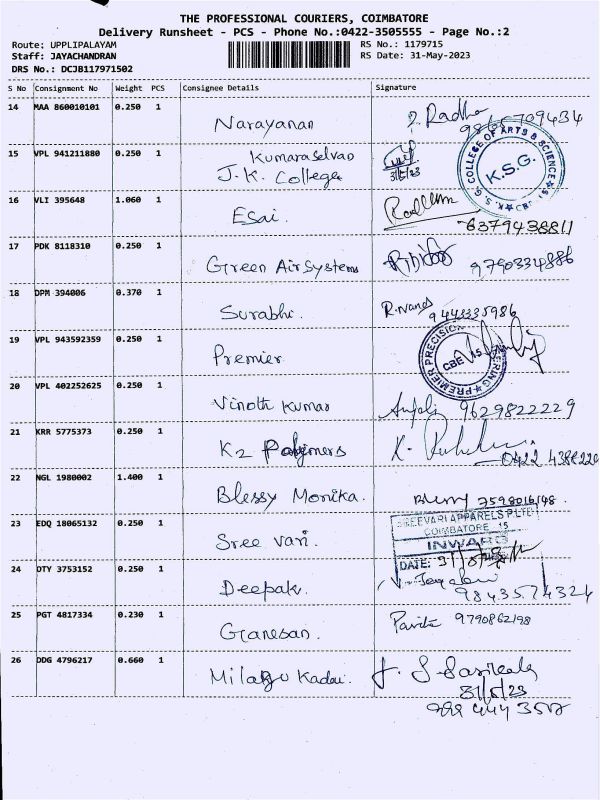 THE PROFESSIONAL COURIERS, COIMBATORE
Delivery Runsheet - PCS - Phone No.:0422-3505555 - Page No.:2
Route: UPPLIPALAYAM
Staff: JAYACHANDRAN
DRS No.: DCJB117971502
RS No.: 1179715
RS Date: 31-May-2023
S No Consignment No Weight PCS Consignee Details Signature
14 MAA 860010101 0.250 1 Narayanan Radha
15 VPL 941211880 0.250 1 Kumaraselvan
J.K. College 31/5/23
K.S.G. COLLEGE OF ARTS & SCIENCE
K.S.G.
16 VLI 395648 1.060 1 Esai. 6379438811
17 PDK 8118310 0.250 1 Green Air Systems 9790334886
18 DPM 394006 0.370 1 Surabhi. 9443335986
19 VPL 943592359 0.250 1 Premier
PREMIER PRECISION
CBE 15
20 VPL 402252625 0.250 1 Vinoth Kumar 9629822229
21 KRR 5775373 0.250 1 K2 Polymers
22 NGL 1980002 1.400 1 Blessy Monika.
23 EDQ 18065132 0.250 1 Sree Vari.
SREEVARI APPARELS P LTD
COIMBATORE 15
INWARD
DATE:
24 DTY 3753152 0.250 1 Deepak. 9843574324
25 PGT 4817334 0.230 1 Ganesan. 9790862198
26 DDG 4796217 0.660 1 Milagu Kadai.
31/5/23